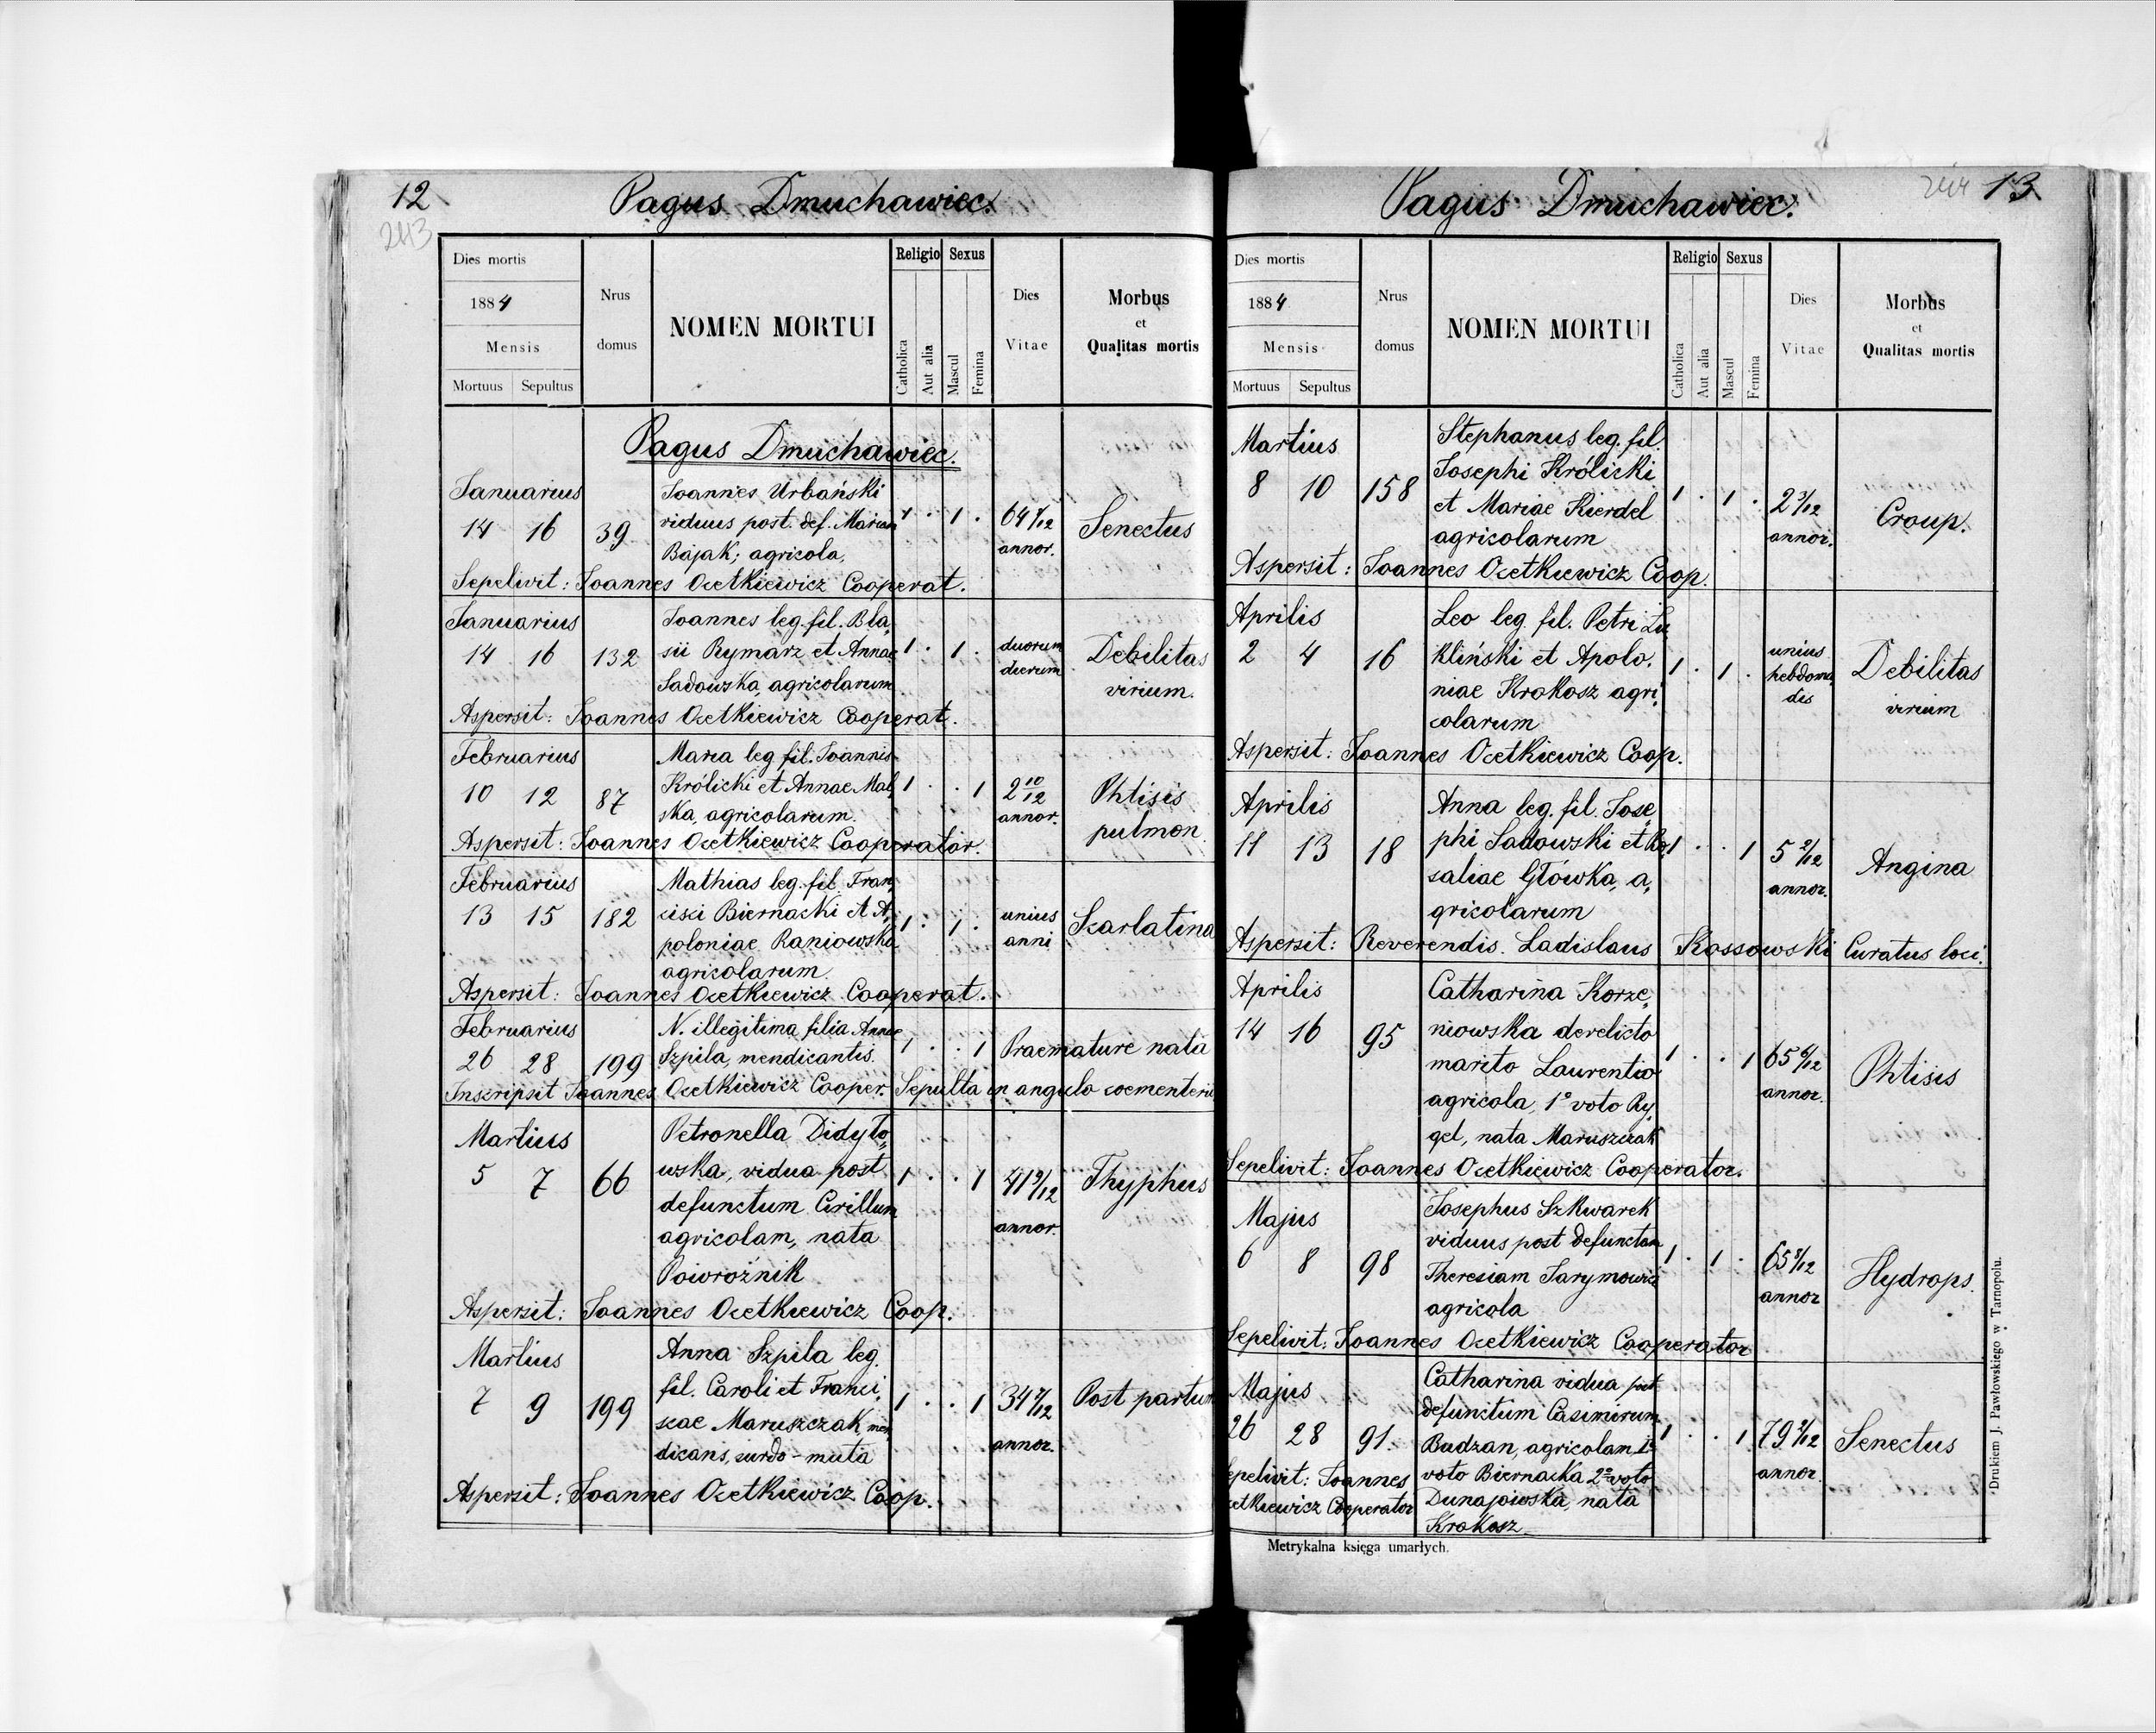 12
243
Pagus Dmuchawiec.
Dies mortis
1884
Mensis
Mortuus Sepultus
Nrus
domus
NOMEN MORTUI
Religio
Catholica
Aut alia
Sexus
Mascul
Femina
Dies
Vitae
Morbus
et
Qualitas mortis
Pagus Dmuchawiec.
Januarius
14 16 39
Joannes Urbański
viduus post. def. Mariam
Bająk; agricola,
1 . 1 .
64 annor.
Senectus
Sepelivit: Joannes Ocetkiewicz Cooperat.
Januarius
14 16 132
Joannes leg. fil. Bla,
sii Rymarz et Annae
Sadowska, agricolarum
1 . 1 .
duorum
dierum
Debilitas
virium.
Aspersit: Joannes Ocetkiewicz Cooperat.
Februarius
10 12 87
Maria leg fil. Joannis
Królicki et Annae Mal,
ska, agricolarum.
1 . . 1
2 10/12
annor.
Phtisis
pulmon.
Aspersit: Joannes Ocetkiewicz Cooperator.
Februarius
13 15 182
Mathias leg. fil. Fran,
cisci Biernacki et A,
poloniae Raniowska
agricolarum
1 . 1 .
unius
anni
Scarlatina
Aspersit: Joannes Ocetkiewicz Cooperat.
Februarius
26 28 199
N. illegitima filia Annae
Szpila, mendicantis.
1 . . 1
Praemature nata
Inscripsit Joannes Ocetkiewicz Cooper. Sepulta in angulo coementerii
Martius
5 7 66
Petronella Didyto,
wska, vidua post
defunctum Cirillum
agricolam, nata
Powroźnik
1 . . 1
41 annor.
Thyphus
Aspersit: Joannes Ocetkiewicz Coop.
Martius
7 9 199
Anna Szpila leg.
fil. Caroli et Franci,
scae Maruszczak, men
dicans, surdo-muta
1 . . 1
34 annor.
Post partum
Aspersit: Joannes Ocetkiewicz Coop.
13
Pagus Dmuchawiec.
Dies mortis
1884
Mensis
Mortuus Sepultus
Nrus
domus
NOMEN MORTUI
Religio
Catholica
Aut alia
Sexus
Mascul
Femina
Dies
Vitae
Morbus
et
Qualitas mortis
Martius
8 10 158
Stephanus leg. fil.
Josephi Królicki
et Mariae Kierdel
agricolarum
1 . 1 .
2 3/12
annor.
Croup.
Aspersit: Joannes Ocetkiewicz Coop.
Aprilis
2 4 16
Leo leg. fil. Petri
kliński et Apolo,
niae Krokosz agri,
colarum
1 . 1 .
unius
hebdoma,
dis
Debilitas
virium
Aspersit: Joannes Ocetkiewicz Coop.
Aprilis
11 13 18
Anna leg. fil. Jose,
phi Sadowski et Ro,
saliae Główka, a,
gricolarum
1 . . 1
5 2/12
annor.
Angina
Aspersit: Reverendis. Ladislaus Kossowski Curatus loci.
Aprilis
14 16 95
Catharina Korze,
niowska derelicto
marito Laurentio
agricola, 1º voto Ry,
gel, nata Maruszczak
1 . . 1
65 6/12
annor.
Phtisis
Sepelivit: Joannes Ocetkiewicz Cooperator.
Majus
6 8 98
Josephus Szkwarek
viduus post defunctam
Theresiam Sarymowicz
agricola
1 . 1 .
65 annor
Hydrops.
Sepelivit: Joannes Ocetkiewicz Cooperator
Majus
26 28 91.
Catharina vidua post
defunctum Casimirum
Budzan, agricolam 1º
voto Biernacka 2º voto
Dunajowska, nata
Krokosz
1 . . 1
79 2/12
annor.
Senectus
epelivit: Joannes
cetkiewicz Cooperator
Metrykalna księga umarłych.
Drukiem J. Pawłowskiego w Tarnopolu.